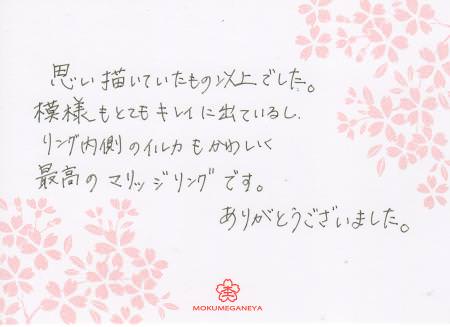 思い描いていたもの以上でした。
模様もとてもキレイに出ているし、
リング内側のイルカもかわいく
最高のマリッジリングです。
ありがとうございました。
MOKUMEGANEYA